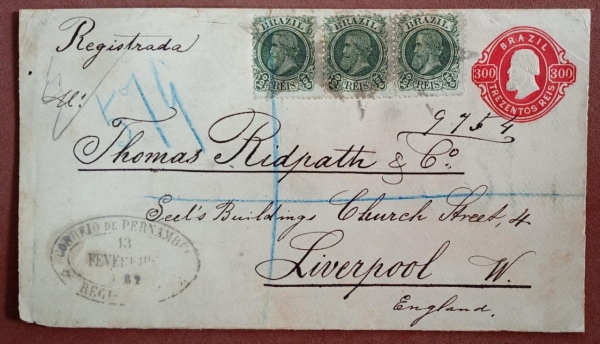 Registrada
BRAZIL
REIS
BRAZIL
REIS
BRAZIL
REIS
BRAZIL
300 300
TREZENTOS REIS
9754
Thomas Ridpath & Co
Seel's Buildings Church Street, 4
Liverpool W.
England.
CORREIO DE PERNAMB
13
FEVEREIR
REG